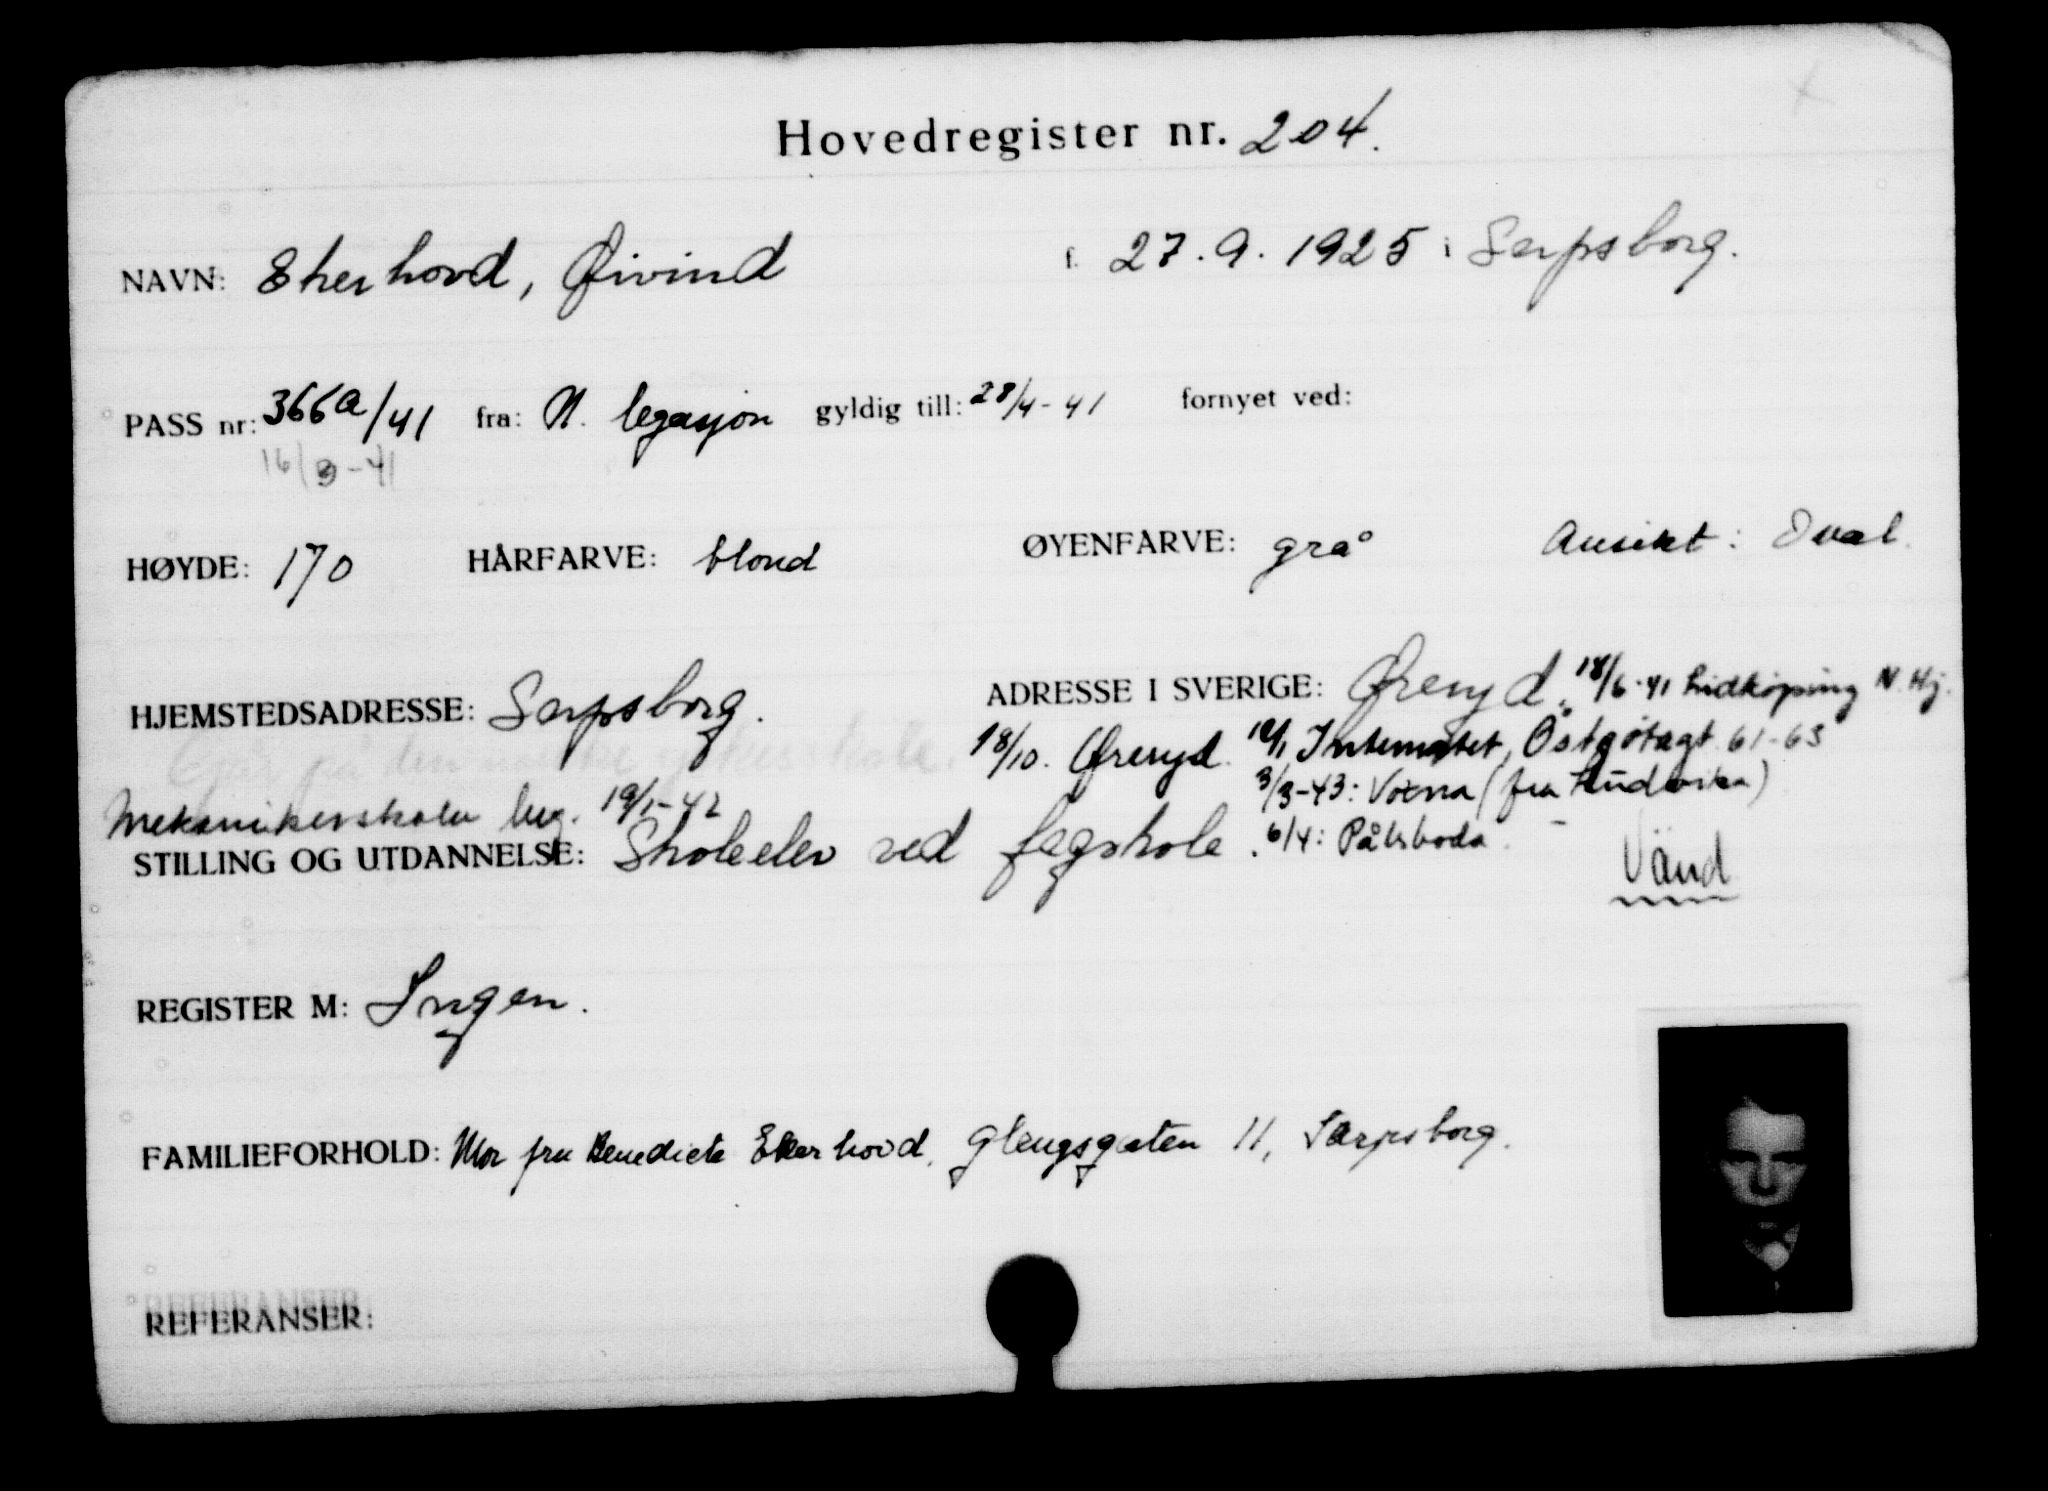 Hovedregister nr. 204.
NAVN: Ekerhovd, Øivind f. 27.9.1925 i Sarpsborg.
PASS nr: 366a/41 fra: N. legasjon gyldig till: 28/4-41 fornyet ved:
16/3-41
HØYDE: 170 HÅRFARVE: blond ØYENFARVE: grå Ansikt: Oval
HJEMSTEDSADRESSE: Sarpsborg. ADRESSE I SVERIGE: Øreryd, 18/6-41 Lidköping N. Hj.
18/10. Øreryd. Internatet, Östgötagt 61-63
3/3-43: Voxna (fra
Mekanikerskolen beg. 19/1-42
STILLING OG UTDANNELSE: Skoleelev ved fagskole. 6/4: Pålsboda.
Vänd
REGISTER M: Ingen.
FAMILIEFORHOLD: Mor fru Benedicte Ekerhovd, Glengsgaten 11, Sarpsborg.
REFERANSER: